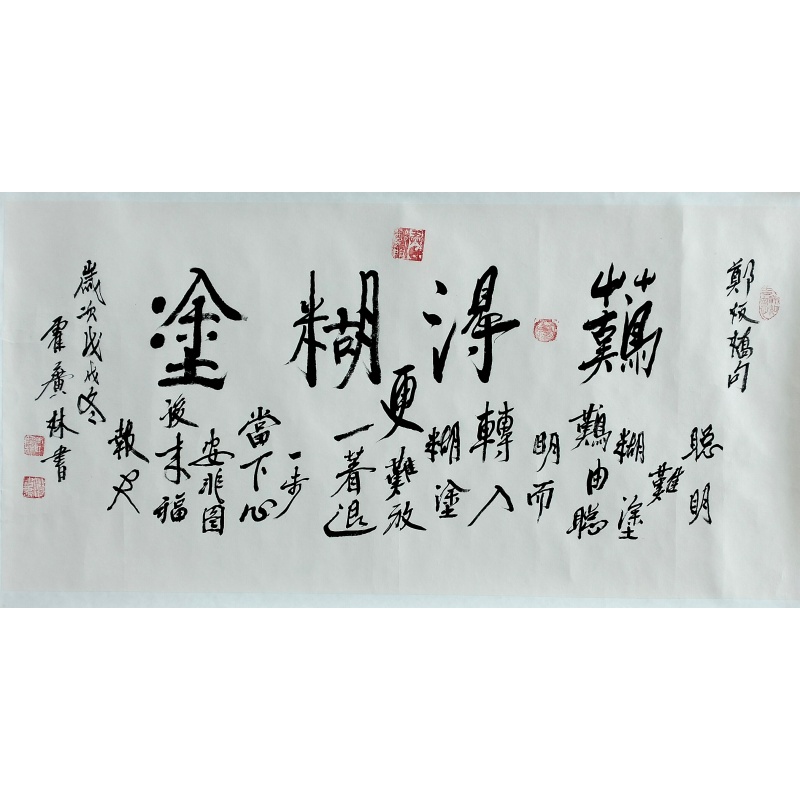 鄭板橋句
難得糊塗
聰明
難
糊塗
難由聰
明而
轉入
糊塗
更難放
一著退
一步
當下心
安非圖
後来福
報也
歲次戊戌冬
霍廣林書